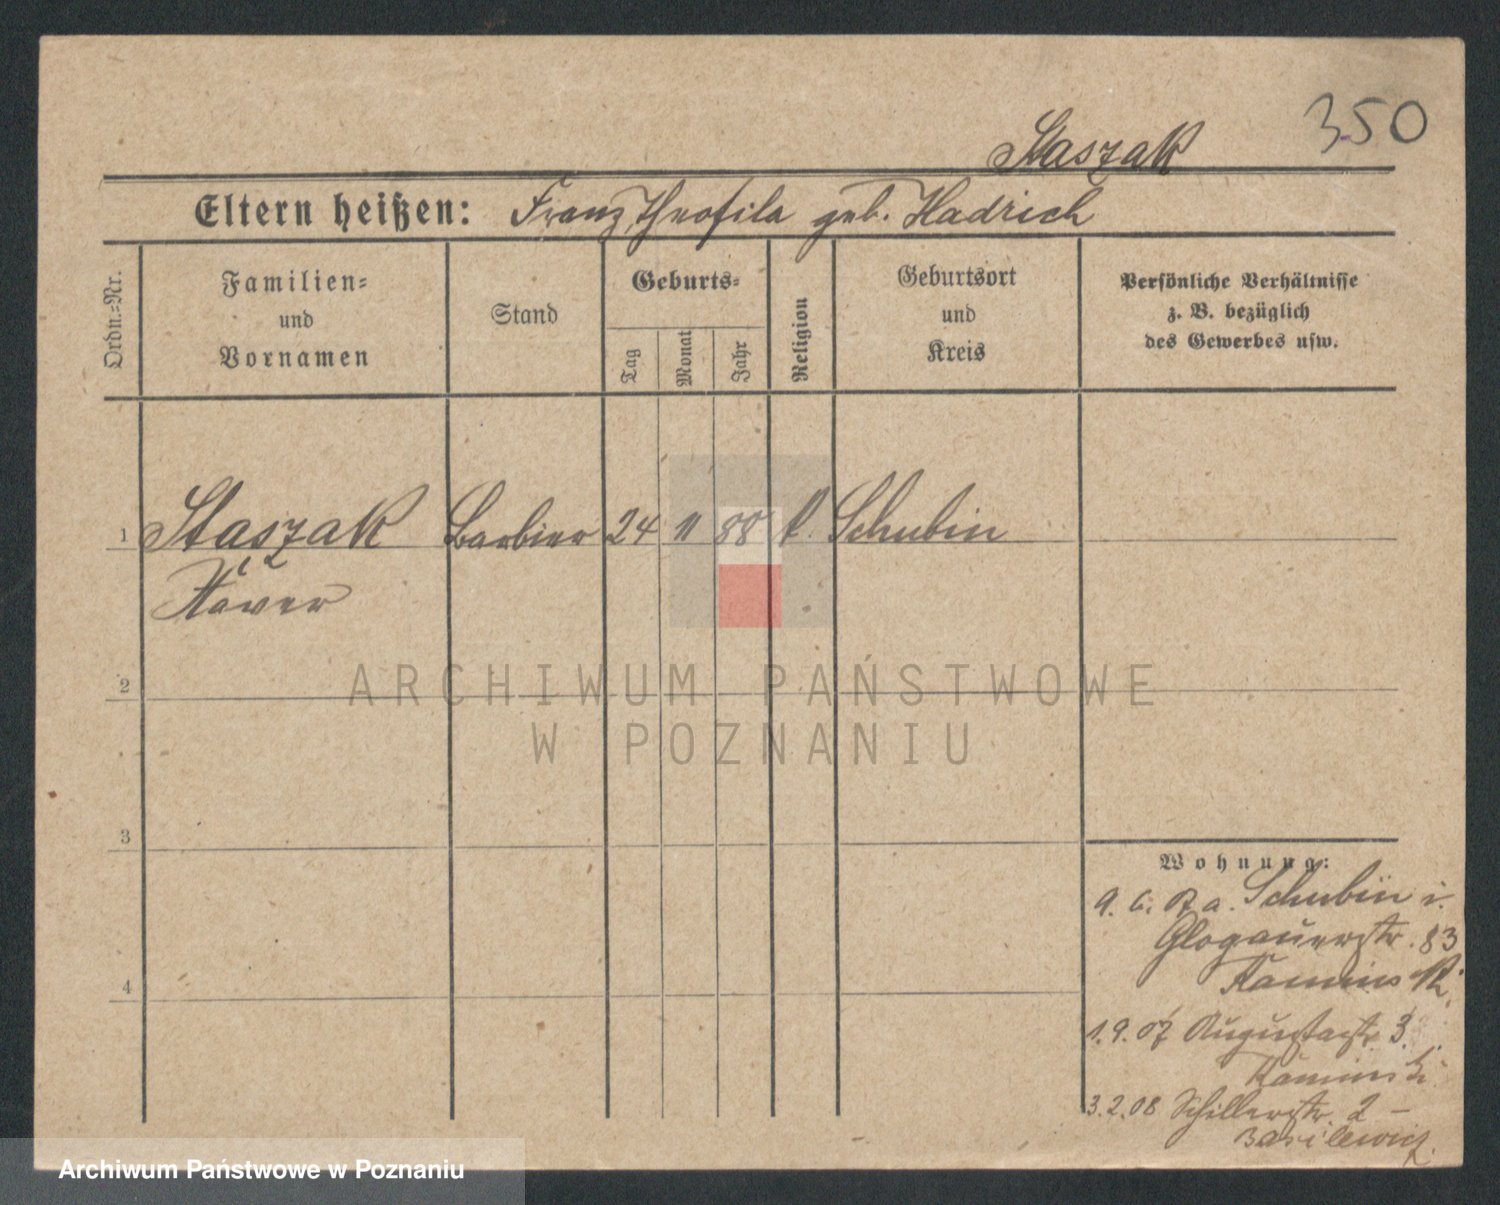 350
Staszak
Eltern heißen: Franz, Theofila geb. Hadrich
Ordn.=Nr.
Familien=
und
Vornamen
Stand
Geburts=
Tag
Monat
Jahr
Religion
Geburtsort
und
Kreis
Persönliche Verhältnisse
z. B. bezüglich
des Gewerbes usw.
1 Staszak Barbier 24 11 88 k. Schubin
Xaver
2
ARCHIWUM PAŃSTWOWE
W POZNANIU
3
4
Wohnung:
9. 6. 07 a. Schubin i.
Glogauerstr. 83
Kaminski
1.9.07 Augustastr. 3.
Kaminski
3.2.08 Schillerstr. 2 –
Basilewicz.
Archiwum Państwowe w Poznaniu